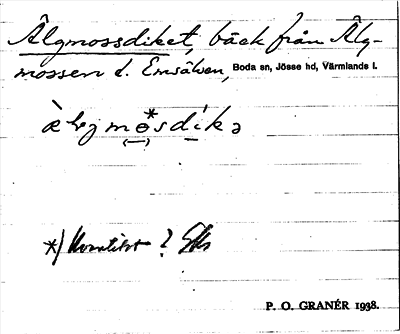 Älgmossdiket, bäck från Älg-
mossen t. Emsälven, Boda sn, Jösse hd, Värmlands l.
*) Konstitot ? 
P. O. GRANÉR 1938.